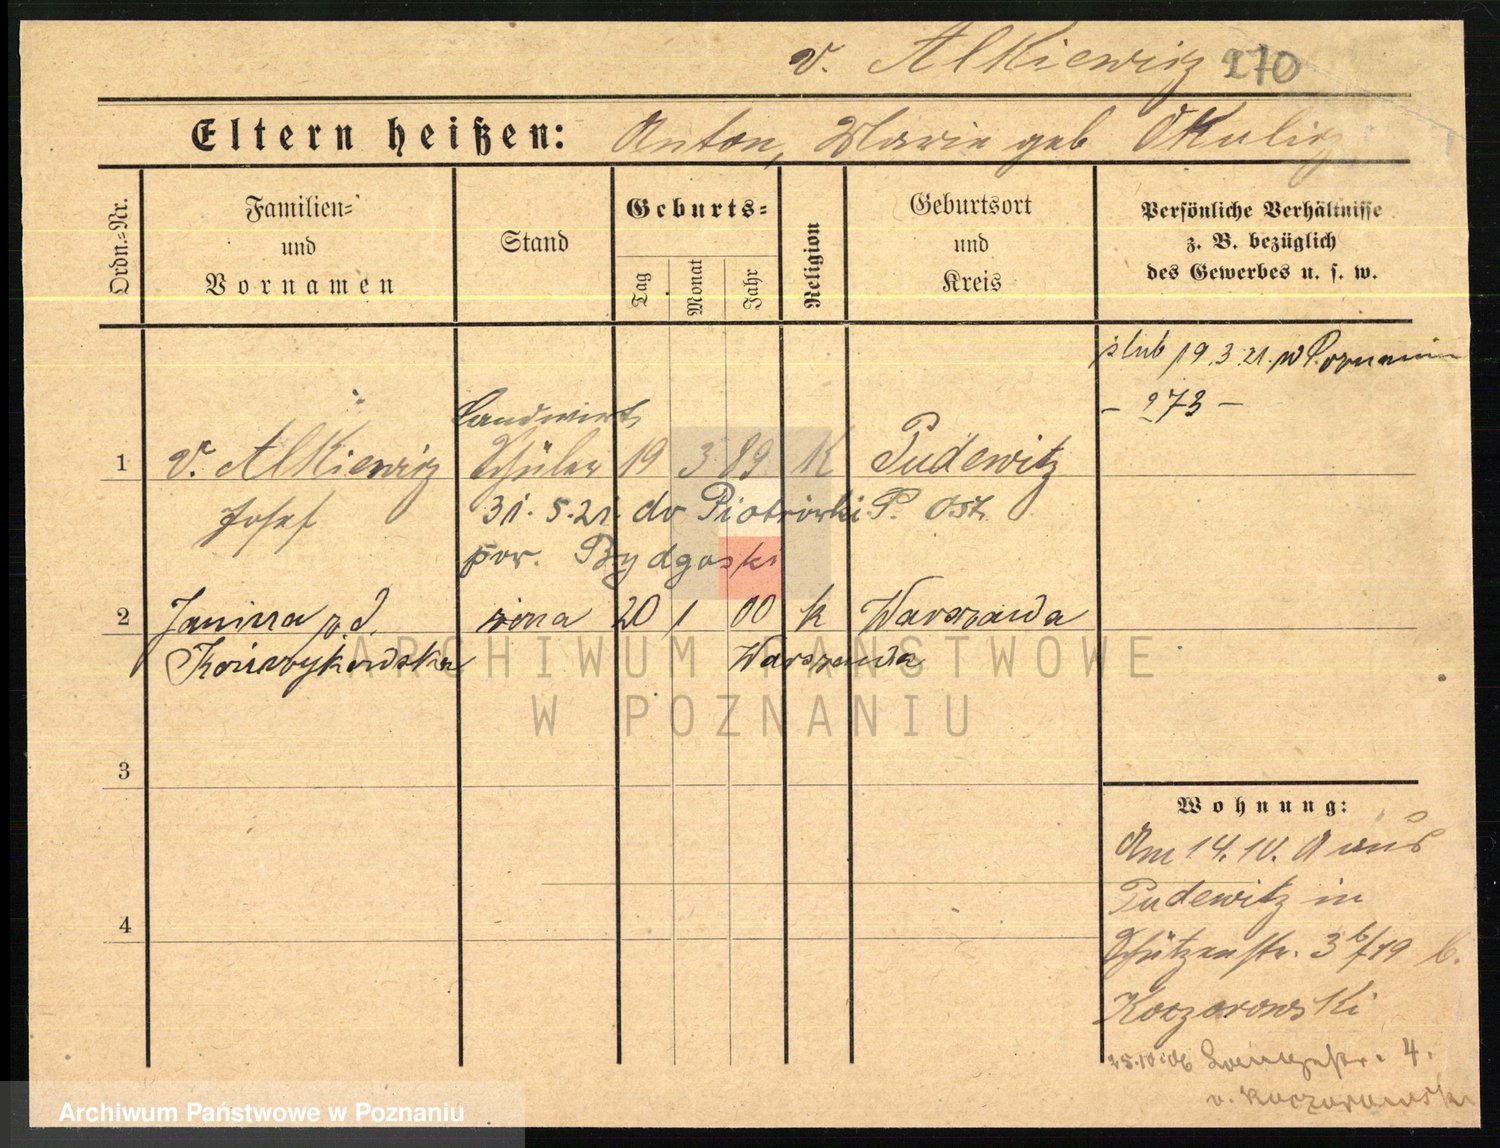 v. Alkiewicz 270
Eltern heißen: Anton, Marie geb Okulicz
Ordn.-Nr.
Familien- und Vornamen
Stand
Geburts-
Tag
Monat
Jahr
Religion
Geburtsort und Kreis
Persönliche Verhältnisse z. B. bezüglich des Gewerbes u. s. w.
ślub 19.3.21. w Poznaniu
- 273 -
Landwirt
1 v. Alkiewicz Schüler 19 3 89 K Pudewitz
Josef 31.5.21. do Piotrówki P. Ost
pow. Bydgoski
2 Janina z d. żona 20 1 00 k Warszawa
Warszawa
3
4
Wohnung:
Am 14.10. aus
Pudewitz in
Schützenstr. 3 b/19 b.
Koczorowski
25.10.06 4.
v. Koczorowski
ARCHIWUM PAŃSTWOWE
W POZNANIU
Archiwum Państwowe w Poznaniu